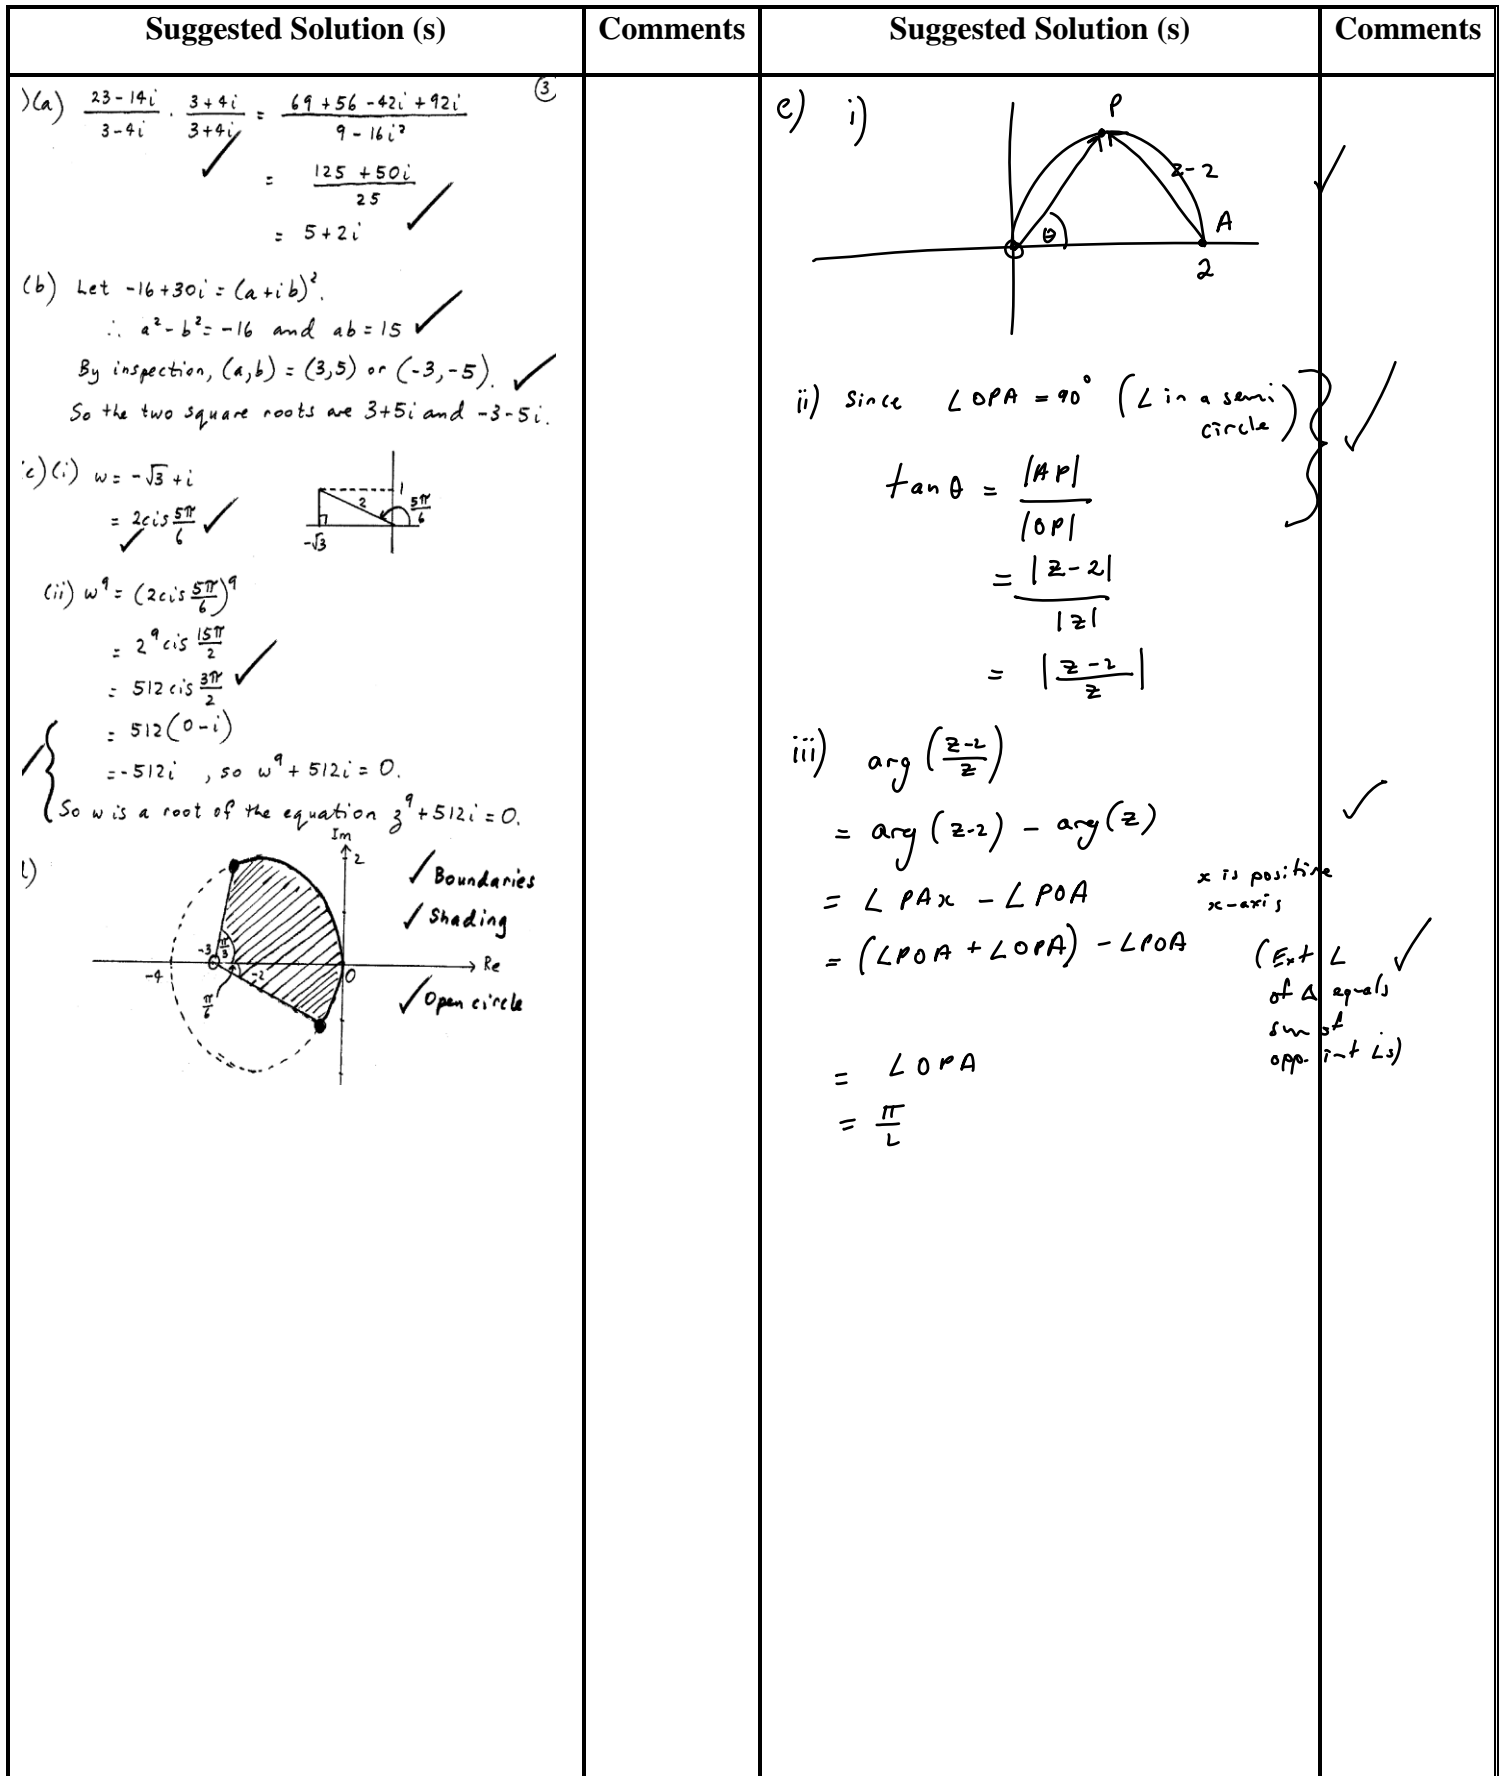 Suggested Solution (s)
Comments
Suggested Solution (s)
Comments
③
)(a) \frac{23-14i}{3-4i} · \frac{3+4i}{3+4i} = \frac{69+56-42i+92i}{9-16i²}
= \frac{125+50i}{25}
= 5+2i
(b) Let -16+30i = (a+ib)².
∴ a²-b²=-16 and ab=15
By inspection, (a,b) = (3,5) or (-3,-5).
So the two square roots are 3+5i and -3-5i.
c)(i) w = -√3 + i
= 2cis \frac{5π}{6}
2
1
\frac{5π}{6}
-√3
(ii) w⁹ = (2cis \frac{5π}{6})⁹
= 2⁹ cis \frac{15π}{2}
= 512 cis \frac{3π}{2}
= 512(0-i)
= -512i , so w⁹ + 512i = 0.
So w is a root of the equation z⁹ + 512i = 0.
Im
2
-3
\frac{π}{3}
-4
-2
0
Re
\frac{π}{6}
Boundaries
Shading
Open circle
e) i)
P
z-2
A
θ
2
ii) Since ∠OPA = 90° (∠ in a semi
circle)
tan θ = \frac{|AP|}{|OP|}
= \frac{|z-2|}{|z|}
= |\frac{z-2}{z}|
iii) arg (\frac{z-2}{z})
= arg (z-2) - arg(z)
= ∠PAx - ∠POA
x is positive
x-axis
= (∠POA + ∠OPA) - ∠POA
(Ext ∠
of Δ equals
sum of
opp. int ∠s)
= ∠OPA
= \frac{π}{2}